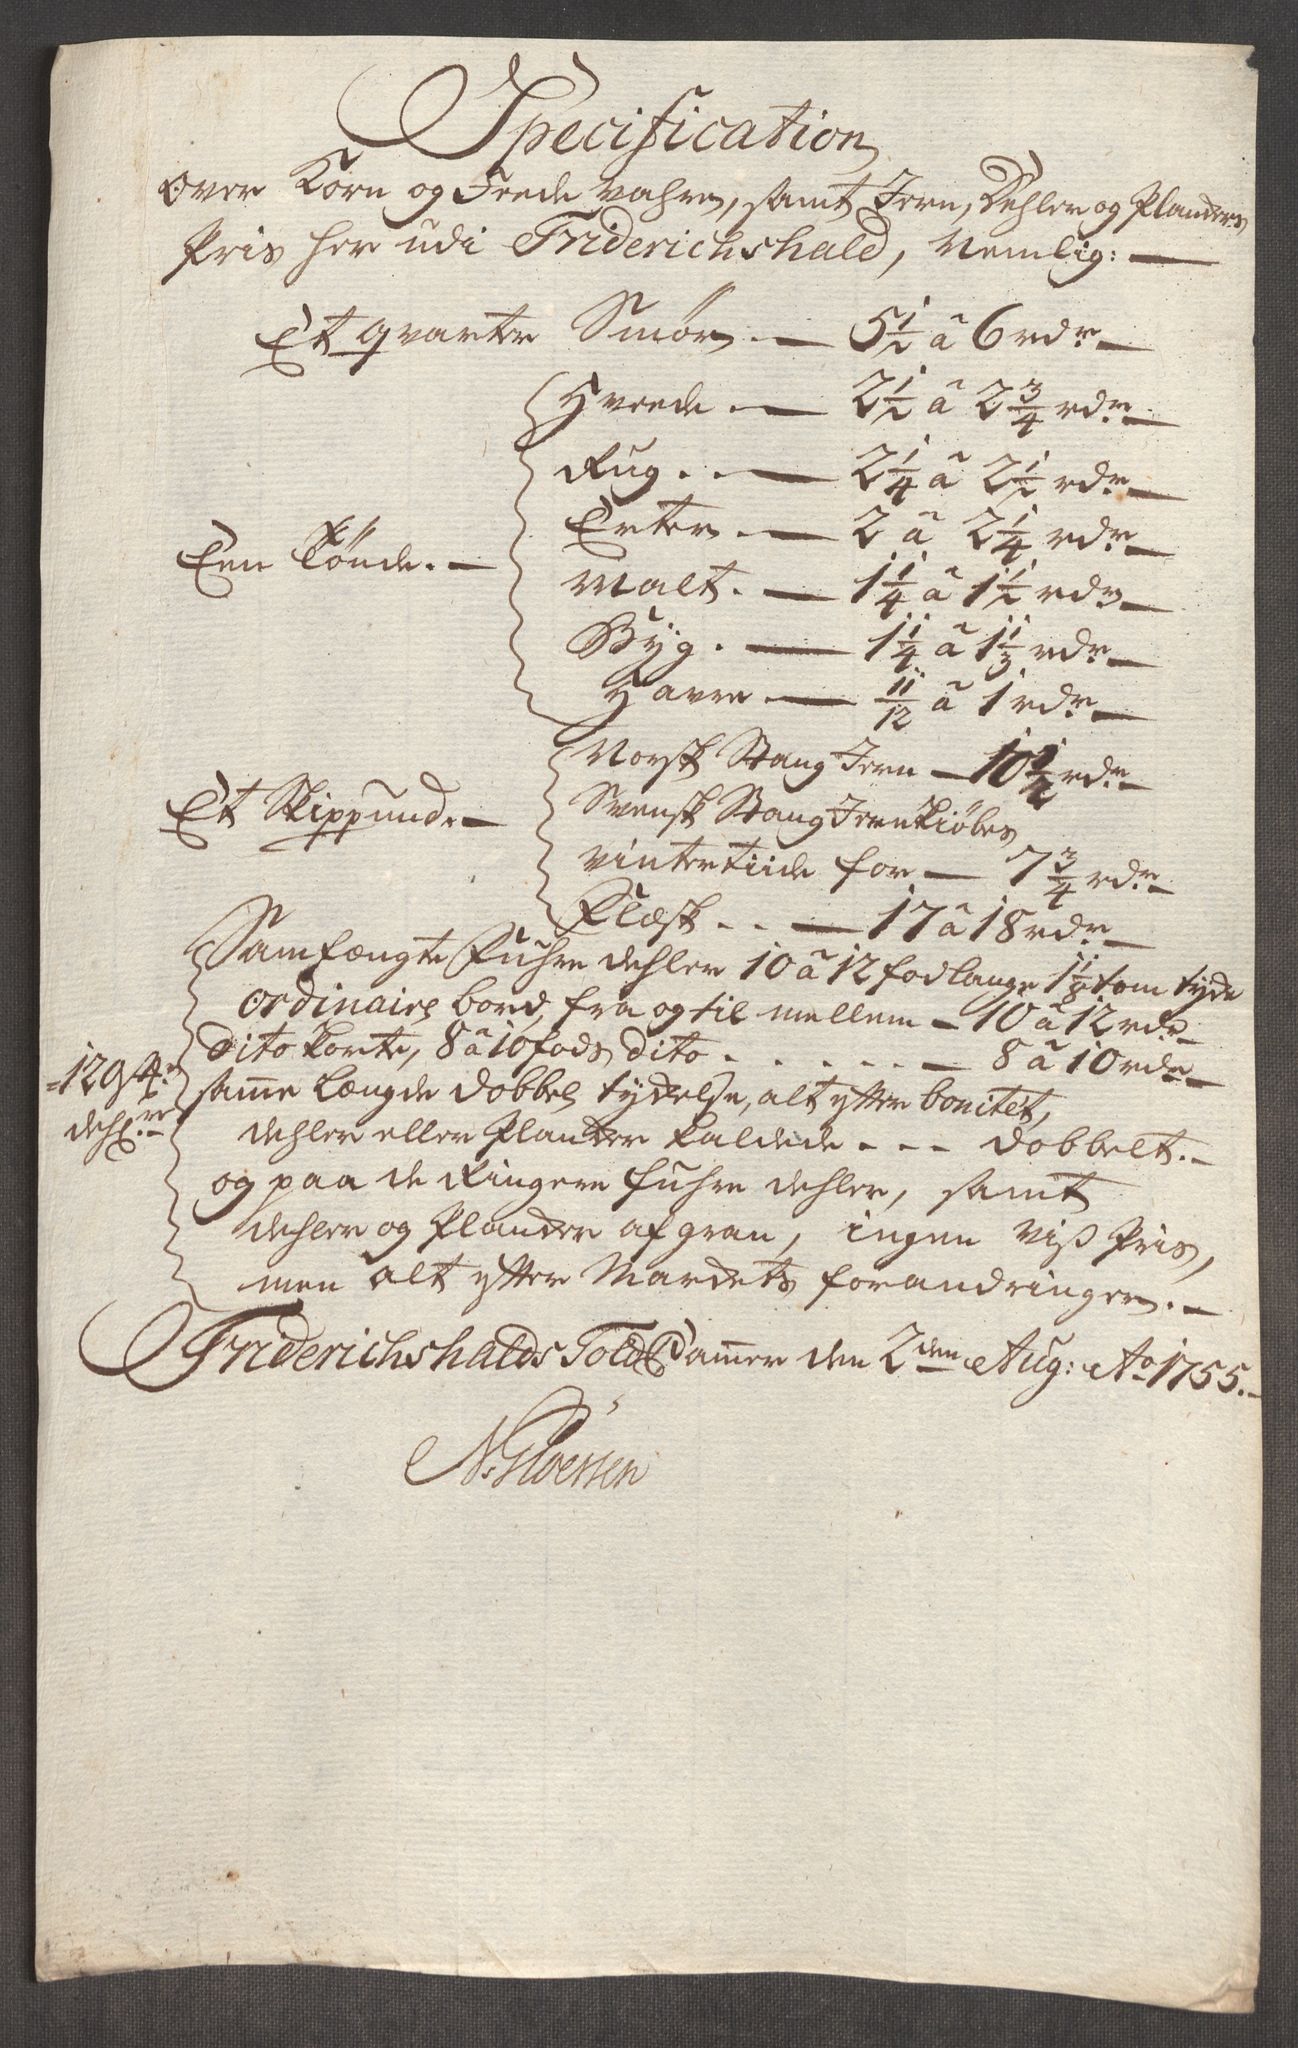 Specification
Over Korn og Feede vahre, samt Jern, Dehler og Planders
Pris her udi Friderichshald, Nemlig:
Et qvarter Smør. — 5 1/2 â 6 rdr —
Hveede. — 2 1/2 â 2 3/4 rdr —
Rug. . — 2 1/4 â 2 1/2 rdr —
Erter. — 2 â 2 1/4 rdr —
Een Tønde. —
Malt. — 1 1/4 â 1 1/2 rdr —
Byg. — 1 1/4 â 1 1/3 rdr —
Havre — 11/12 â 1 rdr —
Norsk Stang Jern — 10 1/2 rdr —
Et Skippund. —
Svensk Stang Jern kiøbes
vintertiide for — 7 3/4 rdr —
Flæsk. . — 17 â 18 rdr —
Samfængte Fuhre dehler 10 â 12 fod lange 1 1/8 tom tyde
Ordinaire bord, fra og til mellem — 10 â 12 rdr —
dito korte, 8 â 10 fods dito . . . . . . — 8 â 10 rdr —
samme Længde dobbel tydelse, alt efter bonitet,
dehler eller Planker kaldede - - - dobbelt. —
og paa de Ringere fuhre dehler, samt
dehler og Plander af gran, ingen viß Pris,
men alt efter Markets forandringer. —
Friderichshalds Told Cammer den 2den Aug: Ao 1755. —